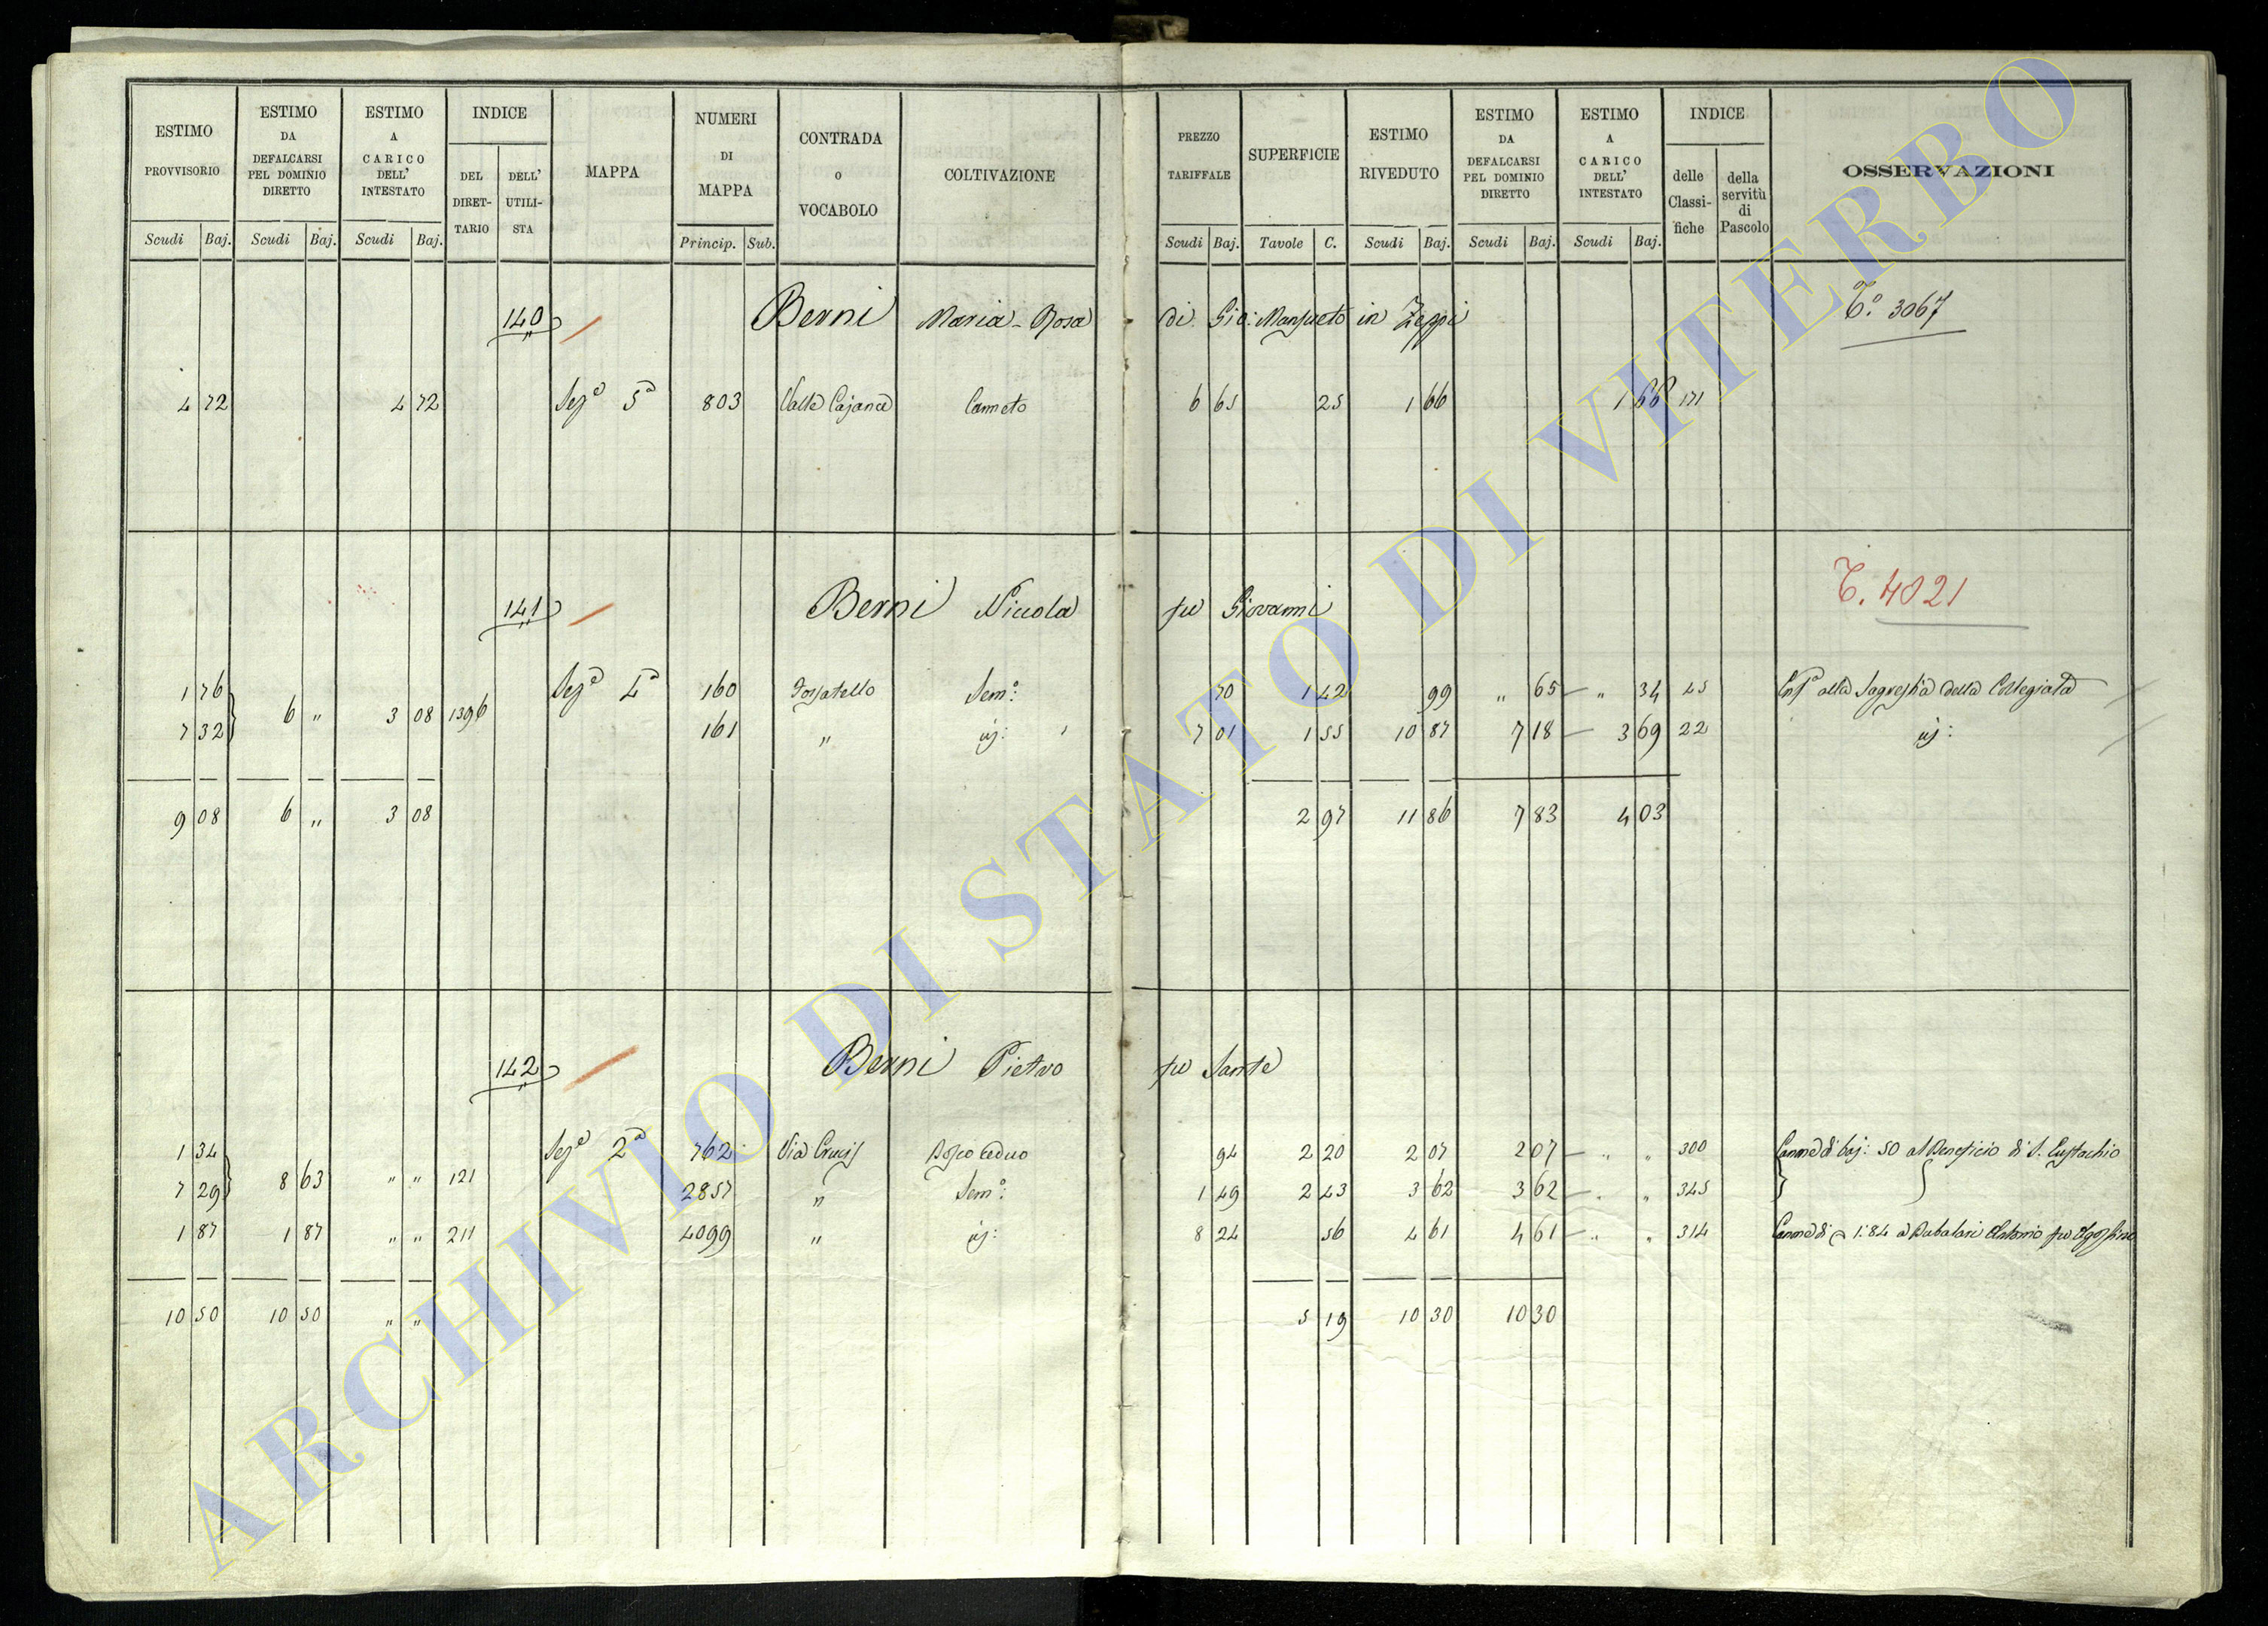 ESTIMO PROVVISORIO | ESTIMO DA DEFALCARSI PEL DOMINIO DIRETTO | ESTIMO A CARICO DELL' INTESTATO | INDICE | MAPPA | NUMERI DI MAPPA | CONTRADA O VOCABOLO | COLTIVAZIONE | PREZZO TARIFFALE | SUPERFICIE | ESTIMO RIVEDUTO | ESTIMO DA DEFALCARSI PEL DOMINIO DIRETTO | ESTIMO A CARICO DELL' INTESTATO | INDICE | OSSERVAZIONI
DEL DIRET-TARIO | DELL' UTILI-STA | delle Classi-fiche | della servitù di Pascolo
Scudi | Baj. | Scudi | Baj. | Scudi | Baj. | Princip. | Sub. | Scudi | Baj. | Tavole | C. | Scudi | Baj. | Scudi | Baj. | Scudi | Baj.
140 Berni Maria-Rosa di Gio: Mansueto in Zeppi T.° 3067
4 72 | 4 72 | Sez.e 5a | 803 | Valle Cajana | Canneto | 6 65 | 25 | 1 66 | 1 66 | 171
141 Berni Niccola fu Giovanni T. 4021
1 76 | Sez.e 4a | 160 | Fossatello | Sem.o: | 70 | 1 42 | 99 | " 65 — | " 34 | 45 | Enf.a alla Sagrestia della Collegiata
7 32 | 6 " | 3 08 | 1396 | 161 | " | id: | 7 01 | 1 55 | 10 87 | 7 18 — | 3 69 | 22 | id:
9 08 | 6 " | 3 08 | 2 97 | 11 86 | 7 83 | 4 03
142 Berni Pietro fu Sante
1 34 | Sez.e 2a | 762 | Via Crucis | Bosco ceduo | 94 | 2 20 | 2 07 | 2 07 — | " " | 300 | Canone di baj: 50 al Beneficio di S. Eustachio
7 29 | 8 63 | " " | 121 | 2857 | " | Sem.o: | 1 49 | 2 43 | 3 62 | 3 62 — | " " | 345
1 87 | 1 87 | " " | 211 | 4099 | " | id: | 8 24 | 56 | 4 61 | 4 61 — | " " | 314 | Canone di 1:84 a Antonio fu
10 50 | 10 50 | " " | 5 19 | 10 30 | 10 30
ARCHIVIO DI STATO DI VITERBO